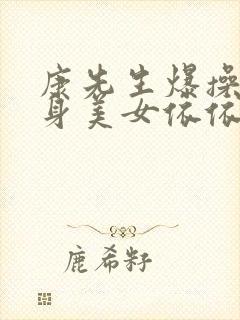 康先生爆操
身美女依依
鹿希籽